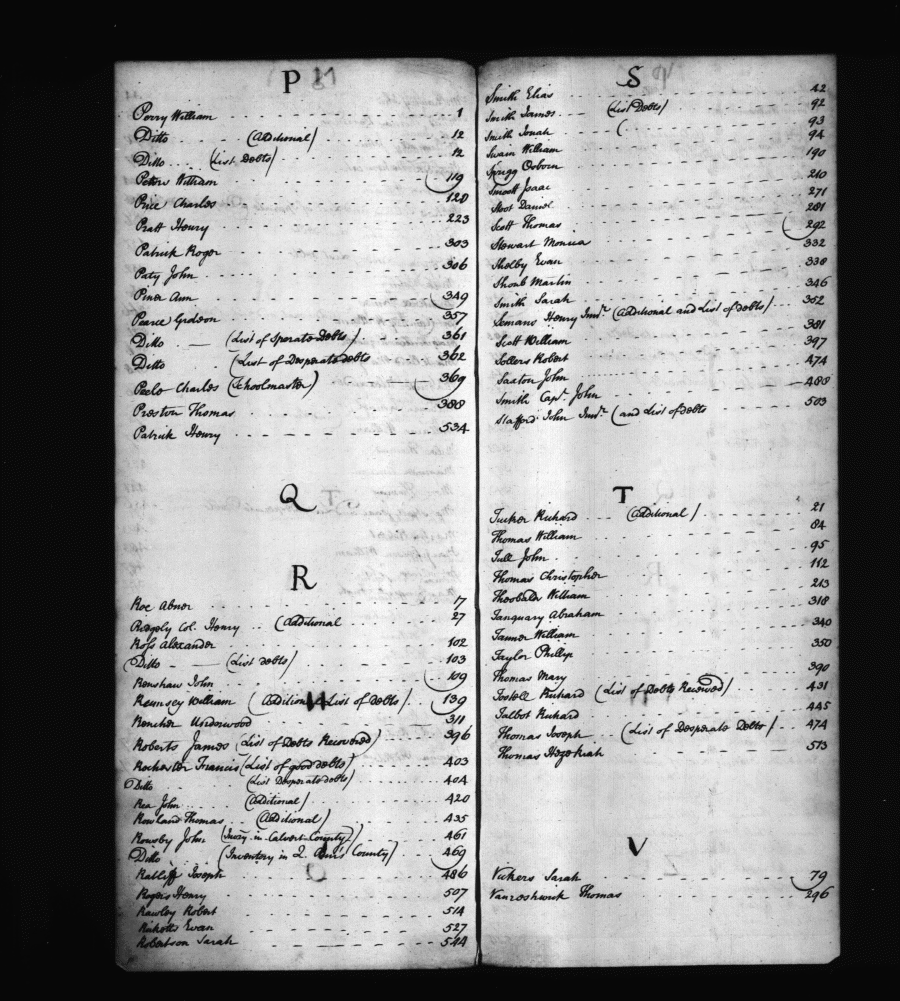 P
Perry William 1
Ditto (Additional) 12
Ditto (List Debts) 12
Peters William 119
Price Charles 120
Pratt Henry 223
Patrick Roger 303
Paty John 306
Piner Ann 349
Pearce Gideon 357
Ditto (List of Sperate debts) 361
Ditto (List of Desperate debts 362
Peele Charles (Schoolmaster) 369
Preston Thomas 388
Patrick Henry 534
Q
R
Roe Abner 17
Ridgely Col. Henry (Additional 27
Ross Alexander 102
Ditto (List debts) 103
Renshaw John 109
Reumsey William (Additional List of debts) 139
Rencher Underwood 311
Roberts James (List of Debts Recovered) 396
Rochester Francis (List of good debts) 403
Ditto (List Desperate debts) 404
Rea John (Additional) 420
Rowland Thomas (Additional) 435
Rousby John (Invry. in Calvert County) 461
Ditto (Inventory in Q. Ann's County) 469
Ratliff Joseph 486
Rogers Henry 507
Rawley Robert 514
Ricketts Evan 527
Robertson Sarah 544
S
Smith Elias 42
Smith James (List Debts) 92
Smith Jonah ( 93
Swain William 94
Sprigg Osborn 190
Smoott Isaac 210
Stoot Daniel 271
Scott Thomas 281
Stewart Monica 292
Shelby Evan 332
Shoub Martin 338
Smith Sarah 346
Semans Henry Junr. (Additional and List of debts) 352
Scott William 381
Sollers Robert 397
Saxton John 474
Smith Capt. John 488
Stafford John Junr. (and List of debts 503
T
Tucker Richard (Additional) 21
Thomas William 84
Tull John 95
Thomas Christopher 112
Theobalds William 213
Tanquary Abraham 318
Tanner William 340
Taylor Phillip 350
Thomas Mary 390
Tostell Richard (List of Debts Received) 431
Talbot Richard 445
Thomas Joseph (List of Desperate Debts) 474
Thomas Hezekiah 513
V
Vickers Sarah 79
Vanreshwick Thomas 296